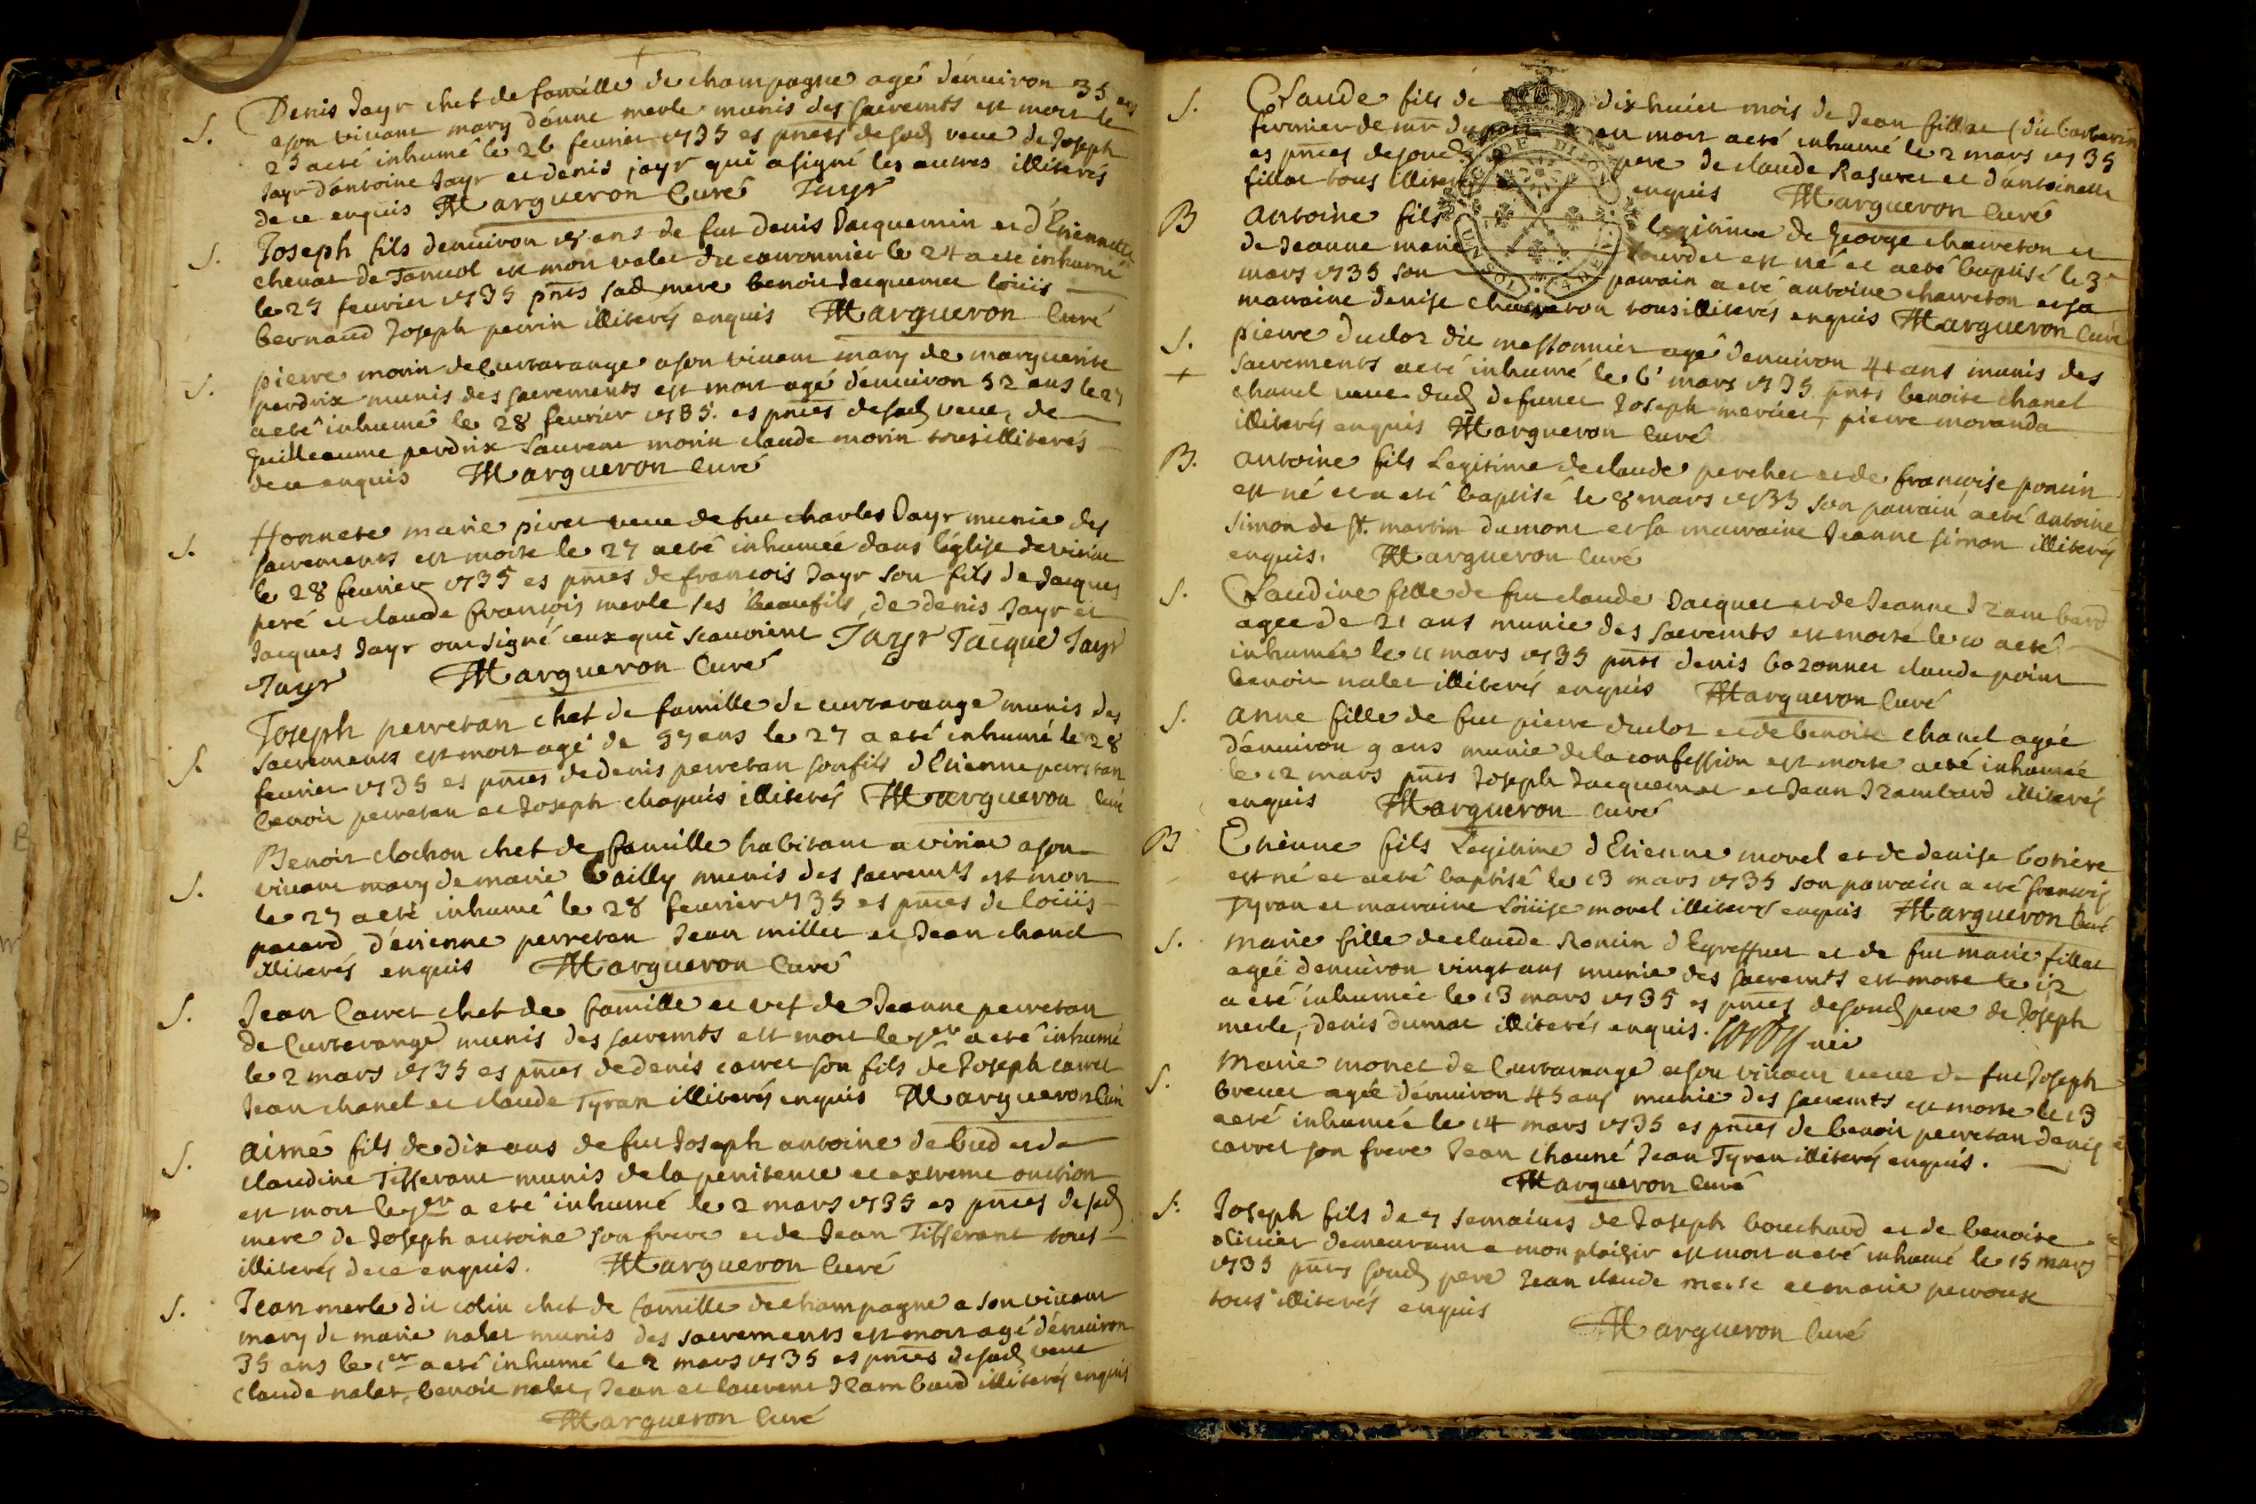 S. Denis Jayr chef de famille de champagne agé dénuiron 35 ans
a son viuant mary dúnne merle munis des sacremts est mort le
25 a eté inhumé le 26 feurier 1735 es pnces de sad veue de Joseph
Jayr d'antoine Jayr et denis jayr qui a signé les autres illiterés
de ce enquis Margueron Curé Jayr
S. Joseph fils denuiron ans de fut denis Jacquemin et d'Etiennette
cheuat de est mort valet du couronnier le 24 a eté inhumé
le 25 feurier 1735 pnts sad mere benoit Jacquemet loüis
bernand Joseph perrin illiterés enquis Margueron Curé
S. pierre morin de Curtarange a son viuant mary de marguerite
perdrix munis des sacrements est mort agé dénuiron 52 ans le 27
a eté inhumé le 28 feurier 1735. es pnces de sad veue, de
guilleaume perdrix laurent morin claude morin tous illiterés
de ce enquis Margueron Curé
S. Honnete marie piret veue de fut charles Jayr munie des
sacrements est morte le 27 a eté inhumée dans l'église de viriat
le 28 feurier 1735 es pnces de francois Jayr son fils de Jacques
peré et claude francois merle ses beaufils, de denis Jayr et
Jacques Jayr ont signé ceux qui scauoient Jayr Jacque Jayr
Jayr Margueron Curé
S. Joseph perretan chef de famille de curtarange munis des
sacrements est mort agé de 57 ans le 27 a eté inhumé le 28
feurier 1735 es pnces de denis perretan son fils d'Etienne perretan
benoit perretan et Joseph chapuis illiterés Margueron Curé
S. Benoit clochon chef de famille habitant a viriat a son
viuant mary de marie bailly munis des sacremts est mort
le 27 a eté inhumé le 28 feurier 1735 es pnces de loüis
pacard d'etienne perretan Jean millet et Jean chanel
illiterés enquis Margueron Curé
S. Jean Carret chef de famille et vef de Jeanne perretan
de Curtarange munis des sacremts est mort le 1er a eté inhumé
le 2 mars 1735 es pnces de denis carret son fils de Joseph carret
Jean chanel et claude Tyran illiterés enquis Margueron Curé
S. aimé fils de dix ans de fut Joseph antoine de bud et de
claudine Tisserant munis de la penitence et extreme onction
est mort le 1er a eté inhumé le 2 mars 1735 es pnces de sad
mere de Joseph antoine son frere et de Jean Tisserant tous
illiterés de ce enquis. Margueron Curé
S. Jean merle dit colin chef de famille de champagne a son viuant
mary de marie nalet munis des sacrements est mort agé dénuiron
35 ans le 1er a eté inhumé le 2 mars 1735 es pnces de sad veue
claude nalet, benoit nalet, Jean et laurent Jzambard illiterés enquis
Margueron Curé
S. Claude fils de dixhuict mois de Jean fillat (dit barbarin
fermier de mr est mort a eté inhumé le 2 mars 1735
es pnces de soud pere de claude Rasurel et d'antoinette
fillat tous illiterés enquis Margueron Curé
B antoine fils legitime de George charreton et
de Jeanne marie est né et a eté baptisé le 3e
mars 1735 son parrain a eté antoine charreton et sa
marraine denise charreton tous illiterés enquis Margueron Curé
S. pierre duclot dit agé denuiron 4+ ans munis des
+ sacrements a eté inhumé le 6e mars 1735 pnts benoite chanel
chanel veue dud defunct Joseph mercier, pierre moranda
illiterés enquis Margueron Curé
B. antoine fils Legitime de claude perchet et de francoise poncin
est né et a eté baptisé le 8 mars 1735 son parrain a eté antoine
simon de st. martin du mont et sa marraine Jeanne simon illiterés
enquis. Margueron Curé
S. Claudine fille de fut claude Jacquet et de Jeanne Jzambard
agée de 21 ans munie des sacremts est morte le 10 a eté
inhumée le 11 mars 1735 pnts denis bozonnet claude point
benoit nalet illiterés enquis Margueron Curé
S. anne fille de fut pierre duclot et de benoite chanel agée
dénuiron 9 ans munie de la confession est morte a eté inhumée
le 12 mars pnts Joseph Jacquemet et Jean Jzambard illiterés
enquis Margueron Curé
B Etienne fils Legitime d'Etienne morel et de denise boziere
est né et a eté baptisé le 13 mars 1735 son parrain a eté francois
Tyran et marraine Loüise morel illiterés enquis Margueron Curé
S. marie fille de claude Roncin d'Eyreffuet et de fut marie fillat
ageé denuiron vingt ans munie des sacremts est morte le 12
a eté inhumée le 13 mars 1735 es pnces de soud pere de Joseph
merle, denis dumat illiterés enquis.
S. Marie monet de Curtarange a son viuant veue de fut Joseph
breuet agée dénuiron 45 ans munie des sacremts est morte le 13
a eté inhumée le 14 mars 1735 es pnces de benoit perretan denis
carret son frere Jean chauné Jean Tyran illiterés enquis.
Margueron Curé
S. Joseph fils de 7 semaines de Joseph bouchard et de benoite
oliuier demeurant a mon plaisir est mort a eté inhumé le 15 mars
1735 pnts soud pere Jean claude et marie perrouse
tous illiterés enquis
Margueron Curé